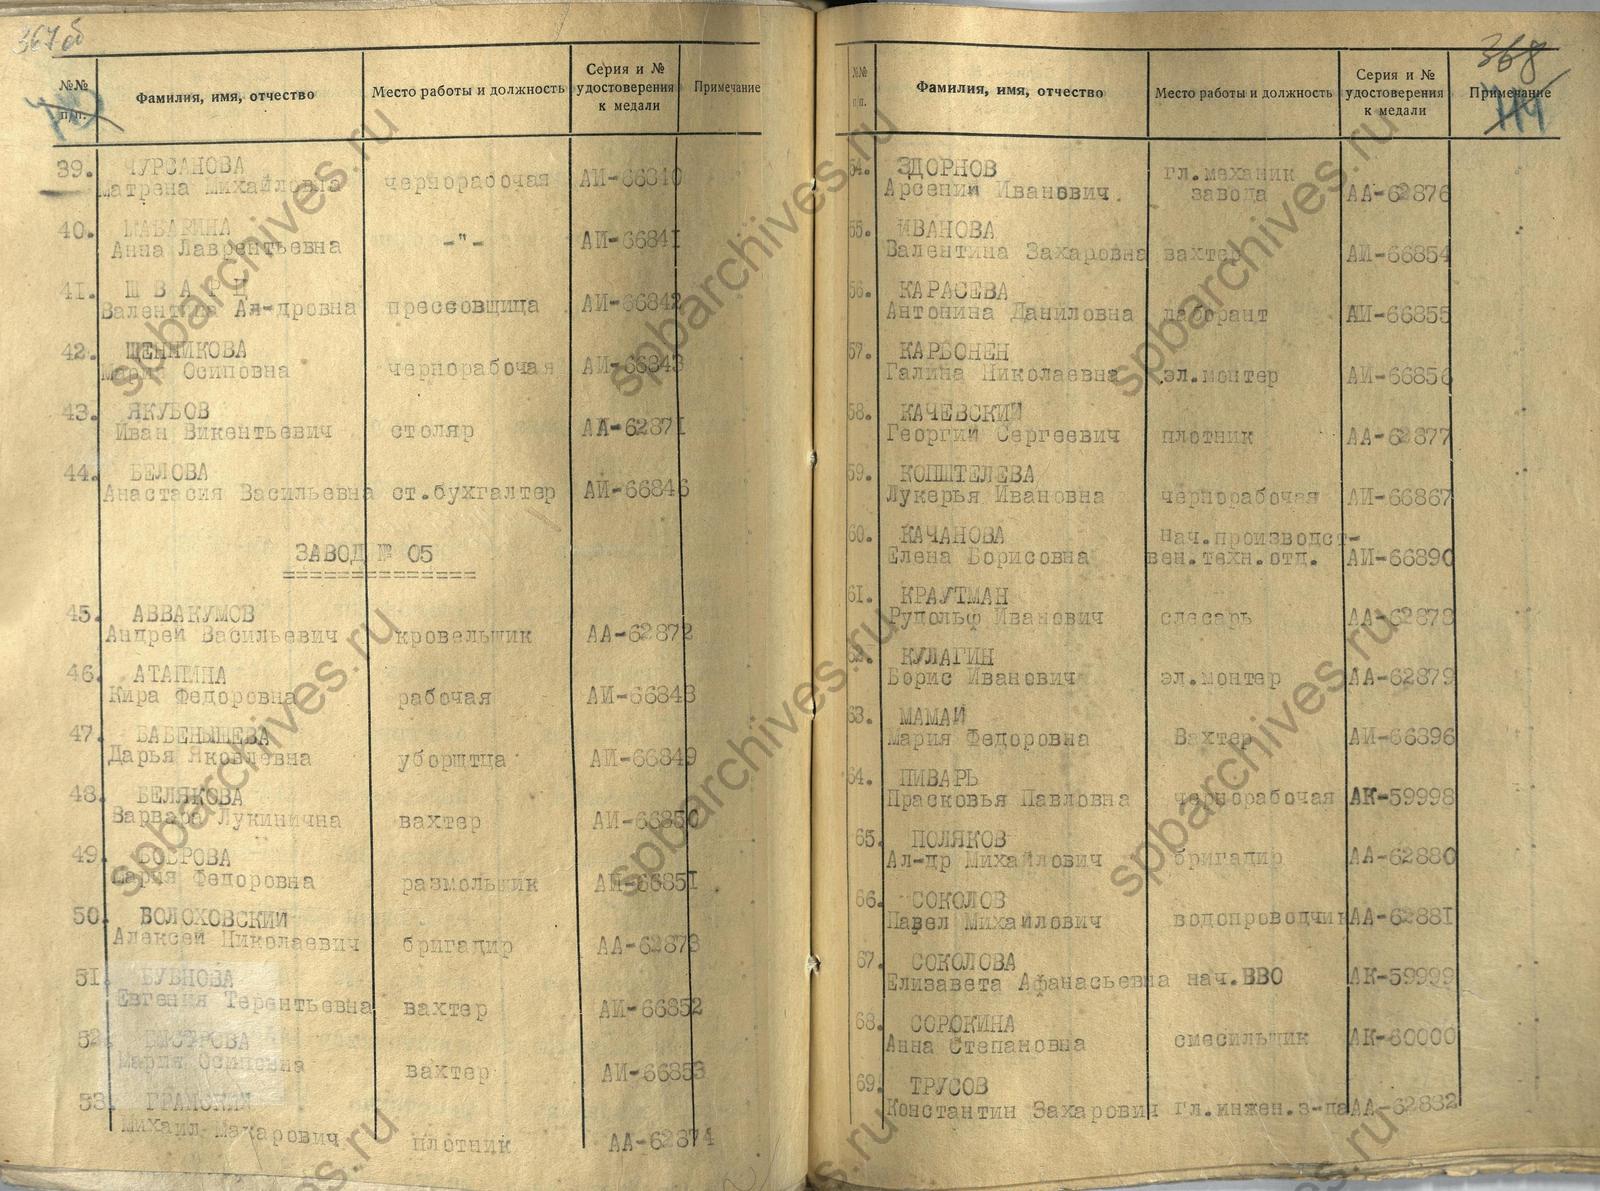 367 об
№№ п/п.
Фамилия, имя, отчество
Место работы и должность
Серия и № удостоверения к медали
Примечание
39. ЧУРСАНОВА
Матрена Михайловна чернорабочая АИ-66840
40.
Анна Лаврентьевна -"- АИ-66841
41. Ш В А Р Ц
Валентина Ал-дровна прессовщица АИ-66842
42. ЩЕННИКОВА
Мария Осиповна чернорабочая АИ-66843
43. ЯКУБОВ
Иван Викентьевич столяр АА-62871
44. БЕЛОВА
Анастасия Васильевна ст.бухгалтер АИ-66846
ЗАВОД № 05
45. АВВАКУМОВ
Андрей Васильевич кровельщик АА-62872
46. АТАПИНА
Кира Федоровна рабочая АИ-66848
47. БАБЕНЫШЕВА
Дарья Яковлевна уборщтца АИ-66849
48. БЕЛЯКОВА
Варвара Лукинична вахтер АИ-66850
49. БОБРОВА
Мария Федоровна размольщик АИ-66851
50. ВОЛОХОВСКИЙ
Алексей Николаевич бригадир АА-62873
51. БУБНОВА
Евгения Терентьевна вахтер АИ-66852
52. БЫСТРОВА
Мария Осиповна вахтер АИ-66853
53.
Михаил Макарович плотник АА-62874
368
№№ п/п.
Фамилия, имя, отчество
Место работы и должность
Серия и № удостоверения к медали
Примечание
114
54. ЗДОРНОВ гл.механик
Арсений Иванович. завода АА-62876
55. ИВАНОВА
Валентина Захаровна вахтер АИ-66854
56. КАРАСЕВА
Антонина Даниловна лаборант АИ-66855
57. КАРВОНЕН
Галина Николаевна эл.монтер АИ-66856
58. КАЧЕВСКИЙ
Георгий Сергеевич плотник АА-62877
59. КОПШТЕЛЕВА
Лукерья Ивановна чернорабочая АИ-66867
60. КАЧАНОВА Нач.производст-
Елена Борисовна вен.техн.отд. АИ-66890
61. КРАУТМАН
Рудольф Иванович слесарь АА-62878
62. КУЛАГИН
Борис Иванович эл.монтер АА-62879
63. МАМАЙ
Мария Федоровна Вахтер АИ-66896
64. ПИВАРЬ
Прасковья Павловна чернорабочая АК-59998
65. ПОЛЯКОВ
Ал-др Михайлович бригадир АА-62880
66. СОКОЛОВ
Павел Михайлович водопроводчик АА-62881
67. СОКОЛОВА
Елизавета Афанасьевна нач.ВВО АК-59999
68. СОРОКИНА
Анна Степановна смесильщик АК-60000
69. ТРУСОВ
Константин Захарович гл.инжен.з-да АА-62882
spbarchives.ru